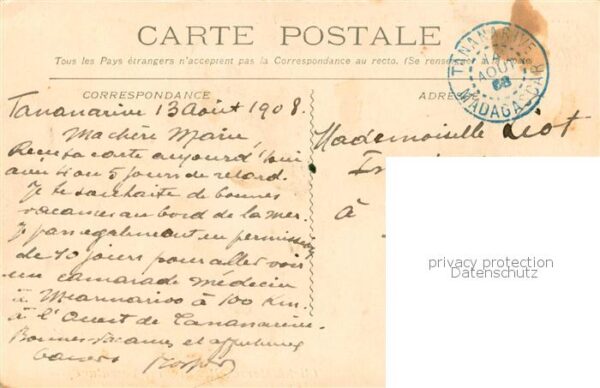 CARTE POSTALE
Tous les Pays étrangers n'acceptent pas la Correspondance au recto. (Se
CORRESPONDANCE
Tananarive 13 Août 1908.
Ma chère Marie
Reçu ta carte aujourd'hui
avec 4 ou 5 jours de retard.
Je te souhaite de bonnes
vacances au bord de la mer.
Je pars également en permission
de 10 jours pour aller voir
un camarade médecin
à Miarinarivo à 100 Km.
à l'Ouest de Tananarive.
Bonnes vacances et affectueux
baisers
TANANARIVE
AOUT
MADAGASCAR
Mademoiselle
à
privacy protection
Datenschutz